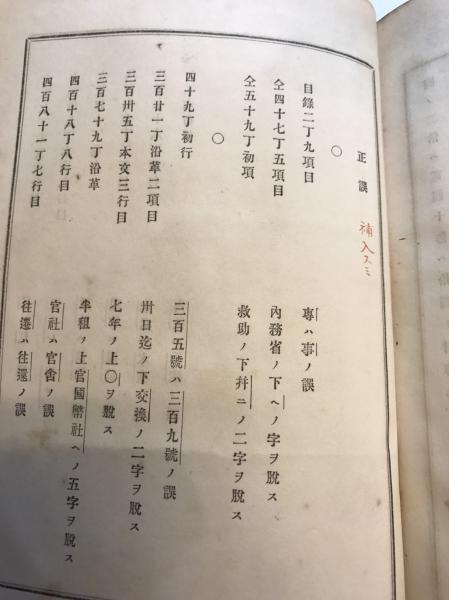 補入スミ
正誤
○
目錄二丁九項目　專ハ事ノ誤
仝四十七丁五項目　內務省ノ下ヘノ字ヲ脫ス
仝五十九丁初項　救助ノ下幷ニノ二字ヲ脫ス
○
四十九丁初行　三百五號ハ三百九號ノ誤
三百廿一丁沿革二項目　卅日迄ノ下交換ノ二字ヲ脫ス
三百卅五丁本文三行目　七年ノ上〇ヲ脫ス
三百七十九丁沿革　半租ノ上官國幣社ヘノ五字ヲ脫ス
四百十八丁八行目　官社ハ官舍ノ誤
四百八十一丁七行目　往遷ハ往還ノ誤